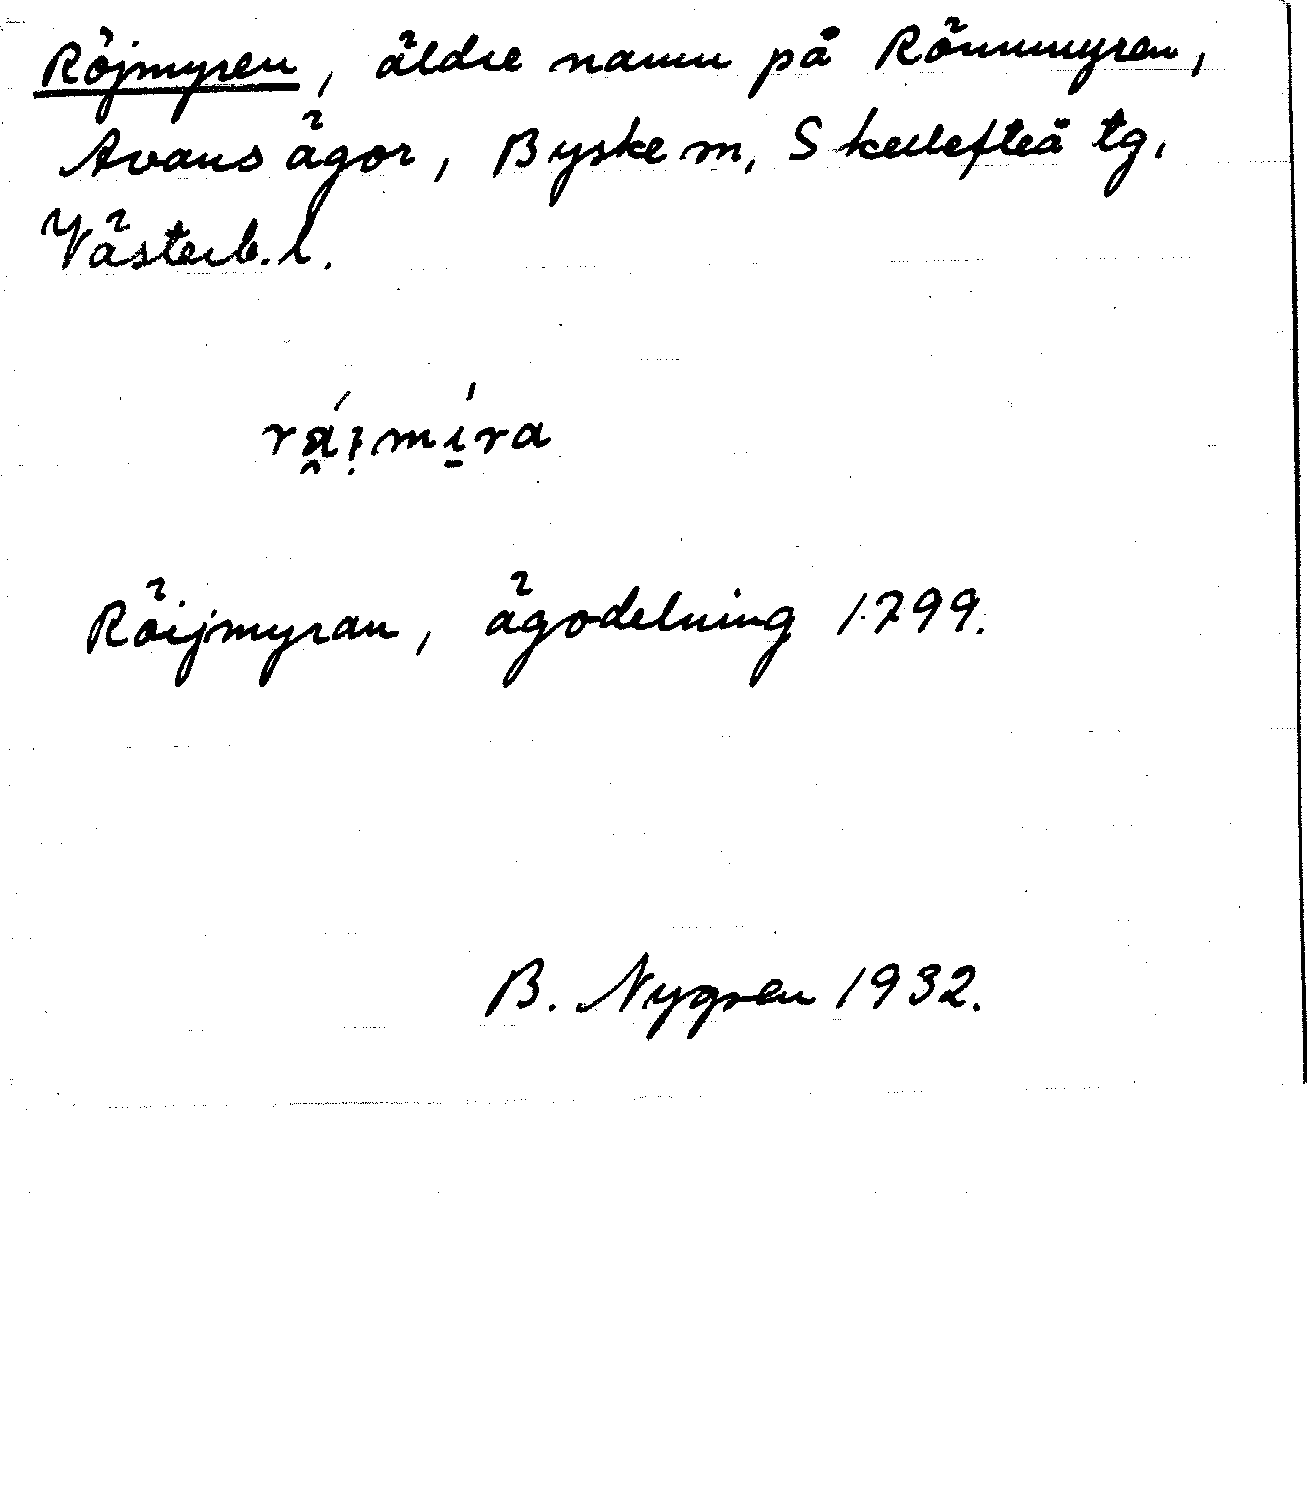 Röjmyren, äldre namn på Rönnmyren,
Avans ägor, Byske m, Skellefteå tg,
Västerb. l.
Röijmyran, ägodelning 1799.
B. Nygren 1932.